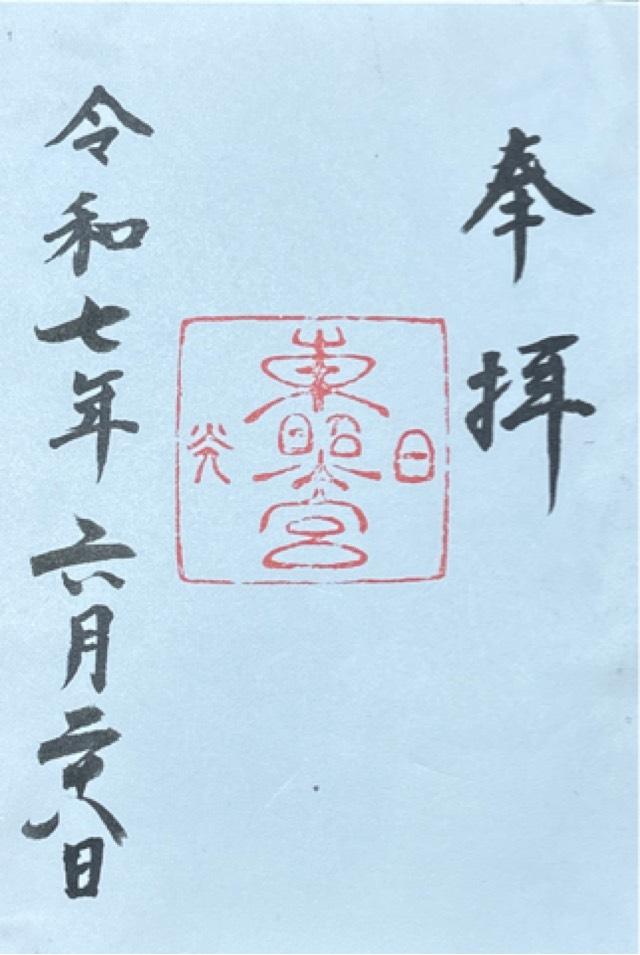 奉拝
日光
東照宮
令和七年六月二十八日